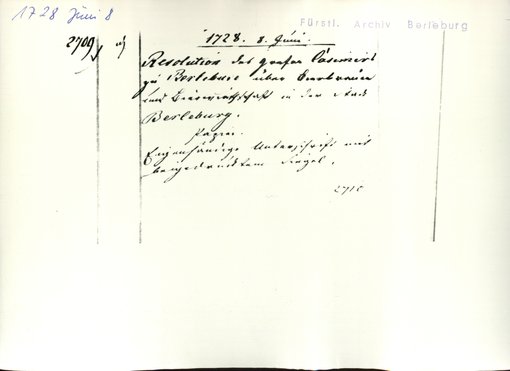 1728 Juni 8
Fürstl. Archiv Berleburg
2709 a)
1728. 8. Juni.
Resolution des Grafen Casimirs
zu Berlebur über Bierbrauen
und Bierwirthschaft in der Stadt
Berleburg.
Papier.
Eigenhändige Unterschrift mit
beigedrucktem Siegel.
2710